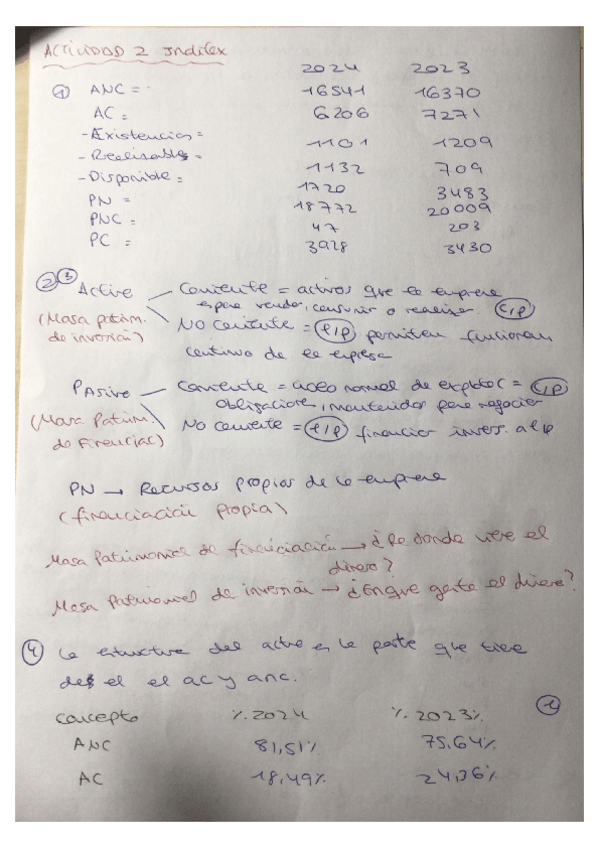 ACTIVIDAD 2 Inditex
2024 2023
1 ANC = 16541 16370
AC = 6206 7271
- Existencias = 1101 1209
- Realisable = 1132 709
- Disponible = 1720 3483
PN = 18772 20009
PNC = 47 203
PC = 3928 3430
2 3 Activo Corriente = activos que la empresa
espera vender, consumir o realizar c/p
(Masa patrim. de inversión) No corriente = l/p permiten funcionam
continuo de la empresa
Pasivo Corriente = ciclo normal de explotac = c/p
obligaciones, mantenidos para negociar
(Masa Patrim. de Financiac) No corriente = l/p financian invers. a l/p
PN → Recursos propios de la empresa
(financiación propia)
Masa patrimonial de financiación → ¿De donde viene el
dinero?
Masa patrimonial de inversión → ¿En que gasta el dinero?
4 La estructura del activo es la parte que tiene
des el el ac y anc.
Concepto %.2024 %.2023% 1
ANC 81,51% 75,64%
AC 18,49% 24,36%